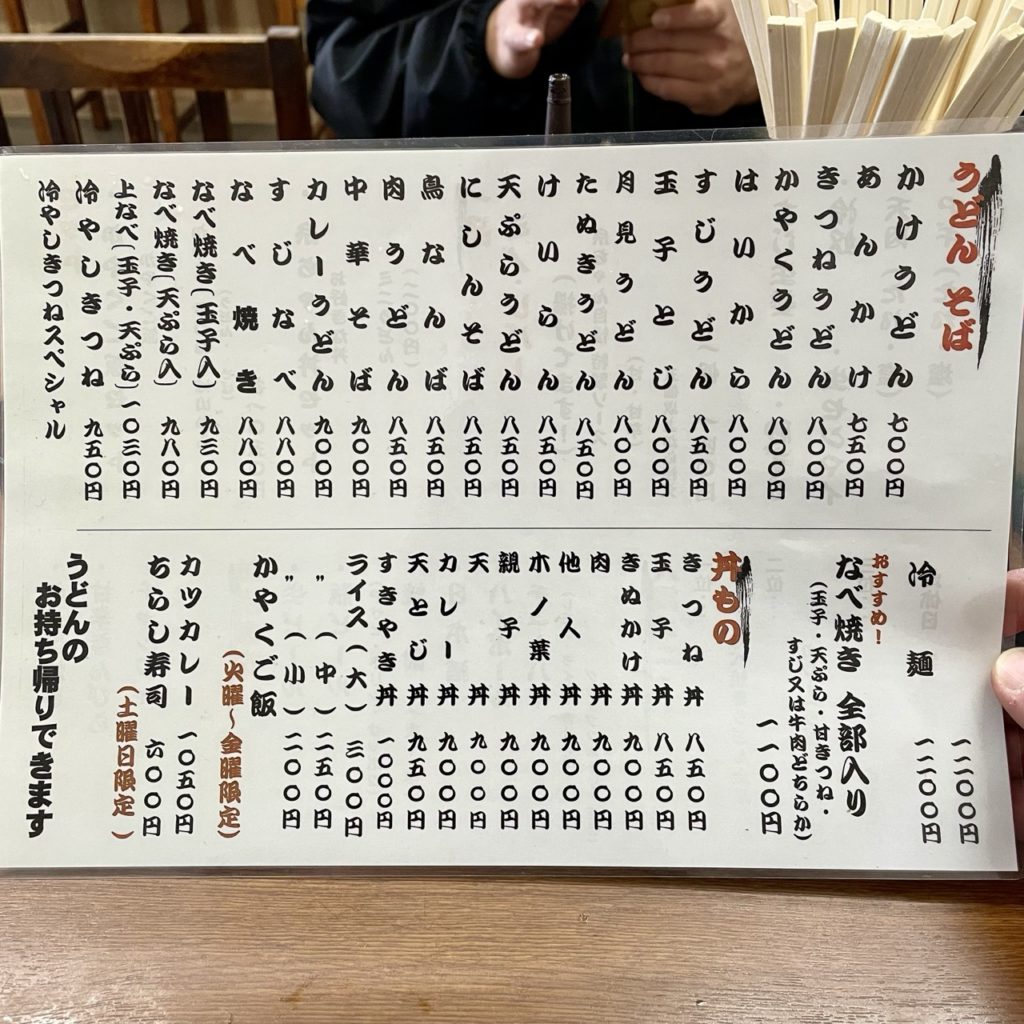 うどん そば
かけうどん 七〇〇円
あんかけ 七五〇円
きつねうどん 八〇〇円
かやくうどん 八〇〇円
はいから 八〇〇円
すじうどん 八五〇円
玉子とじ 八五〇円
月見うどん 八〇〇円
たぬきうどん 八五〇円
けいらん 八五〇円
天ぷらうどん 八五〇円
にしんそば 八五〇円
鳥なんば 八五〇円
肉うどん 八五〇円
中華そば 九〇〇円
カレーうどん 九〇〇円
すじなべ 八八〇円
なべ焼き 八八〇円
なべ焼き(玉子入) 九三〇円
なべ焼き(天ぷら入) 九八〇円
上なべ(玉子・天ぷら) 一〇三〇円
冷やしきつね 九五〇円
冷やしきつねスペシャル
一二〇〇円
冷麺 一二〇〇円
おすすめ!
なべ焼き 全部入り
(玉子・天ぷら・甘きつね・
すじ又は牛肉どちらか)
一一〇〇円
丼もの
きつね丼 八五〇円
玉子丼 八五〇円
きぬかけ丼 九〇〇円
肉丼 九〇〇円
他人丼 九〇〇円
木ノ葉丼 九〇〇円
親子丼 九〇〇円
天丼 九〇〇円
カレー丼 九〇〇円
天とじ丼 九五〇円
すきやき丼 一〇〇〇円
ライス(大) 三〇〇円
〃(中) 二五〇円
〃(小) 二〇〇円
かやくご飯
(火曜〜金曜限定)
カツカレー 一〇五〇円
ちらし寿司 六〇〇円
(土曜日限定)
うどんの
お持ち帰りできます